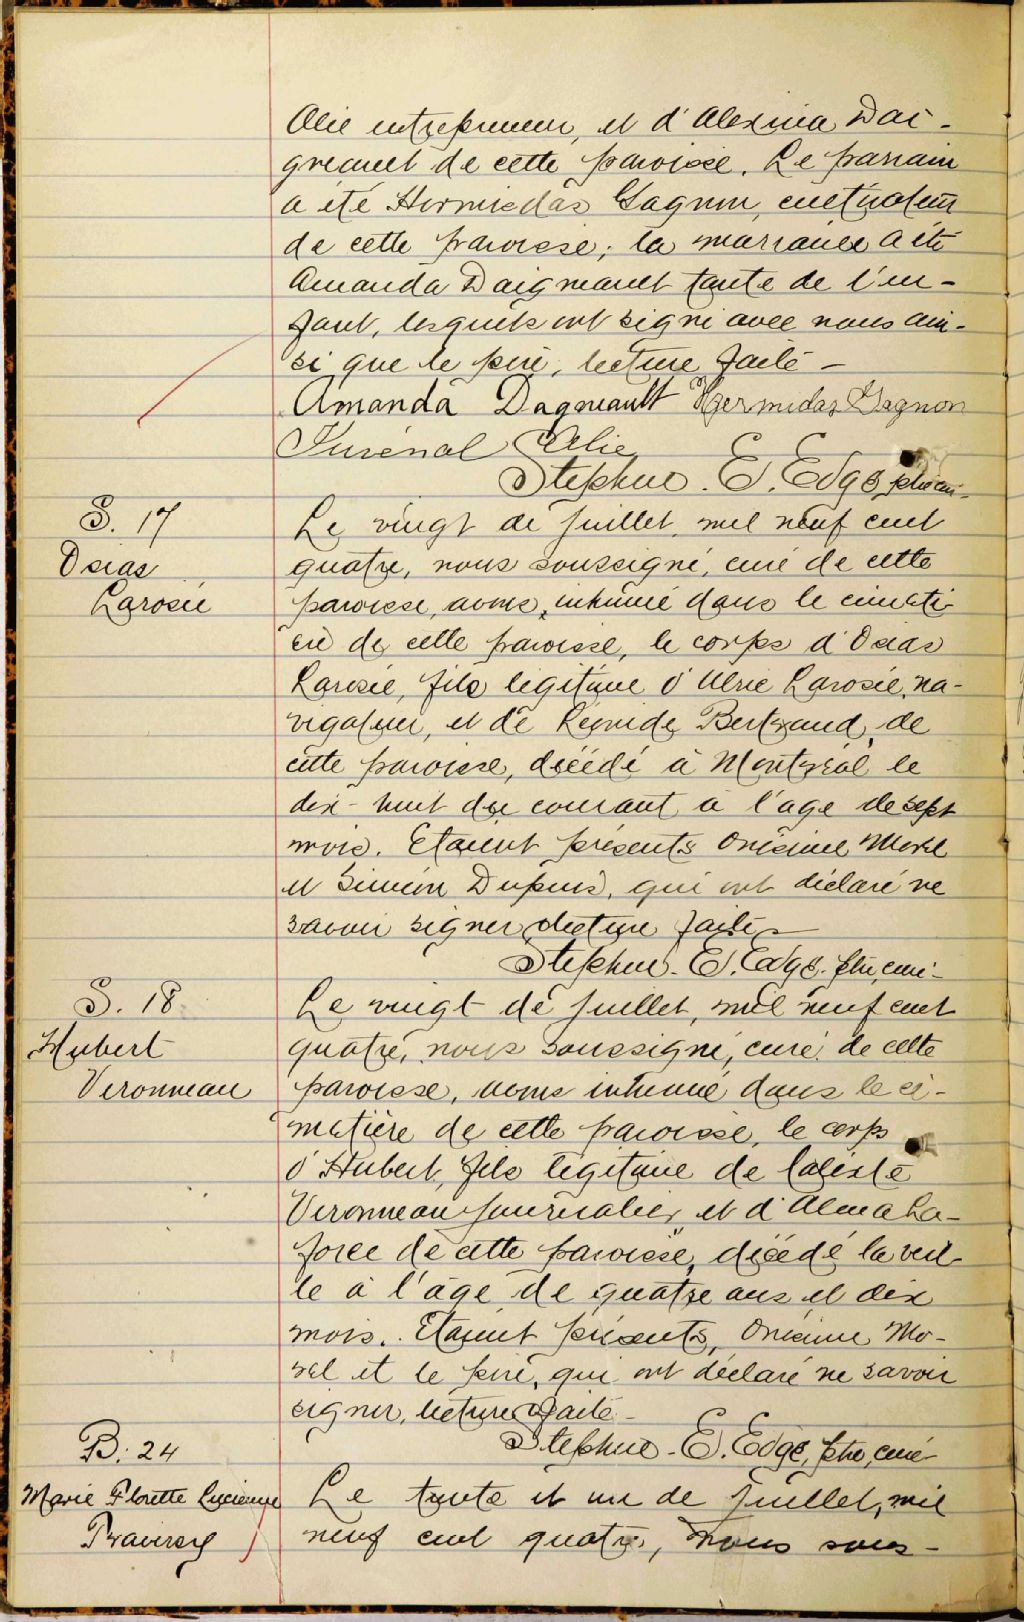 Alie entrepreneur, et d'Alexina Dai-
gneault de cette paroisse. Le parrain
a été Hormisdas Gagnon, cultivateur
de cette paroisse; la marraine a été
Amanda Daigneault tante de l'en-
fant, lesquels ont signé avec nous ain-
si que le père, lecture faite —
Amanda Dagneault Hermidas Gagnon
Juvénal Alie
Stephen E. Edge, ptre curé
S. 17
Osias
Larosée
Le vingt de juillet, mil neuf cent
quatre, nous soussigné, curé de cette
paroisse, avons inhumé dans le cimeti-
ère de cette paroisse, le corps d'Osias
Larosée, fils légitime d'Ulric Larosée, na-
vigateur, et de Bertrand, de
cette paroisse, décédé à Montréal le
dix-huit du courant à l'âge de sept
mois. Étaient présents Onésime Morel
et Siméon Dupuis, qui ont déclaré ne
savoir signer lecture faite —
Stephen E. Edge, ptre, curé-
S. 18
Hubert
Veronneau
Le vingt de juillet, mil neuf cent
quatre, nous soussigné, curé de cette
paroisse, avons inhumé dans le ci-
metière de cette paroisse, le corps
d'Hubert, fils légitime de Calixte
Veronneau journalier, et d'Alma La-
force de cette paroisse, décédé la veil-
le à l'âge de quatre ans et dix
mois. Étaient présents, Onésime Mo-
rel et le père, qui ont déclaré ne savoir
signer, lecture faite —
Stephen E. Edge, ptre, curé
B. 24
Marie Florette Lucienne
Traversy
Le trente et un de juillet, mil
neuf cent quatre, nous sous-